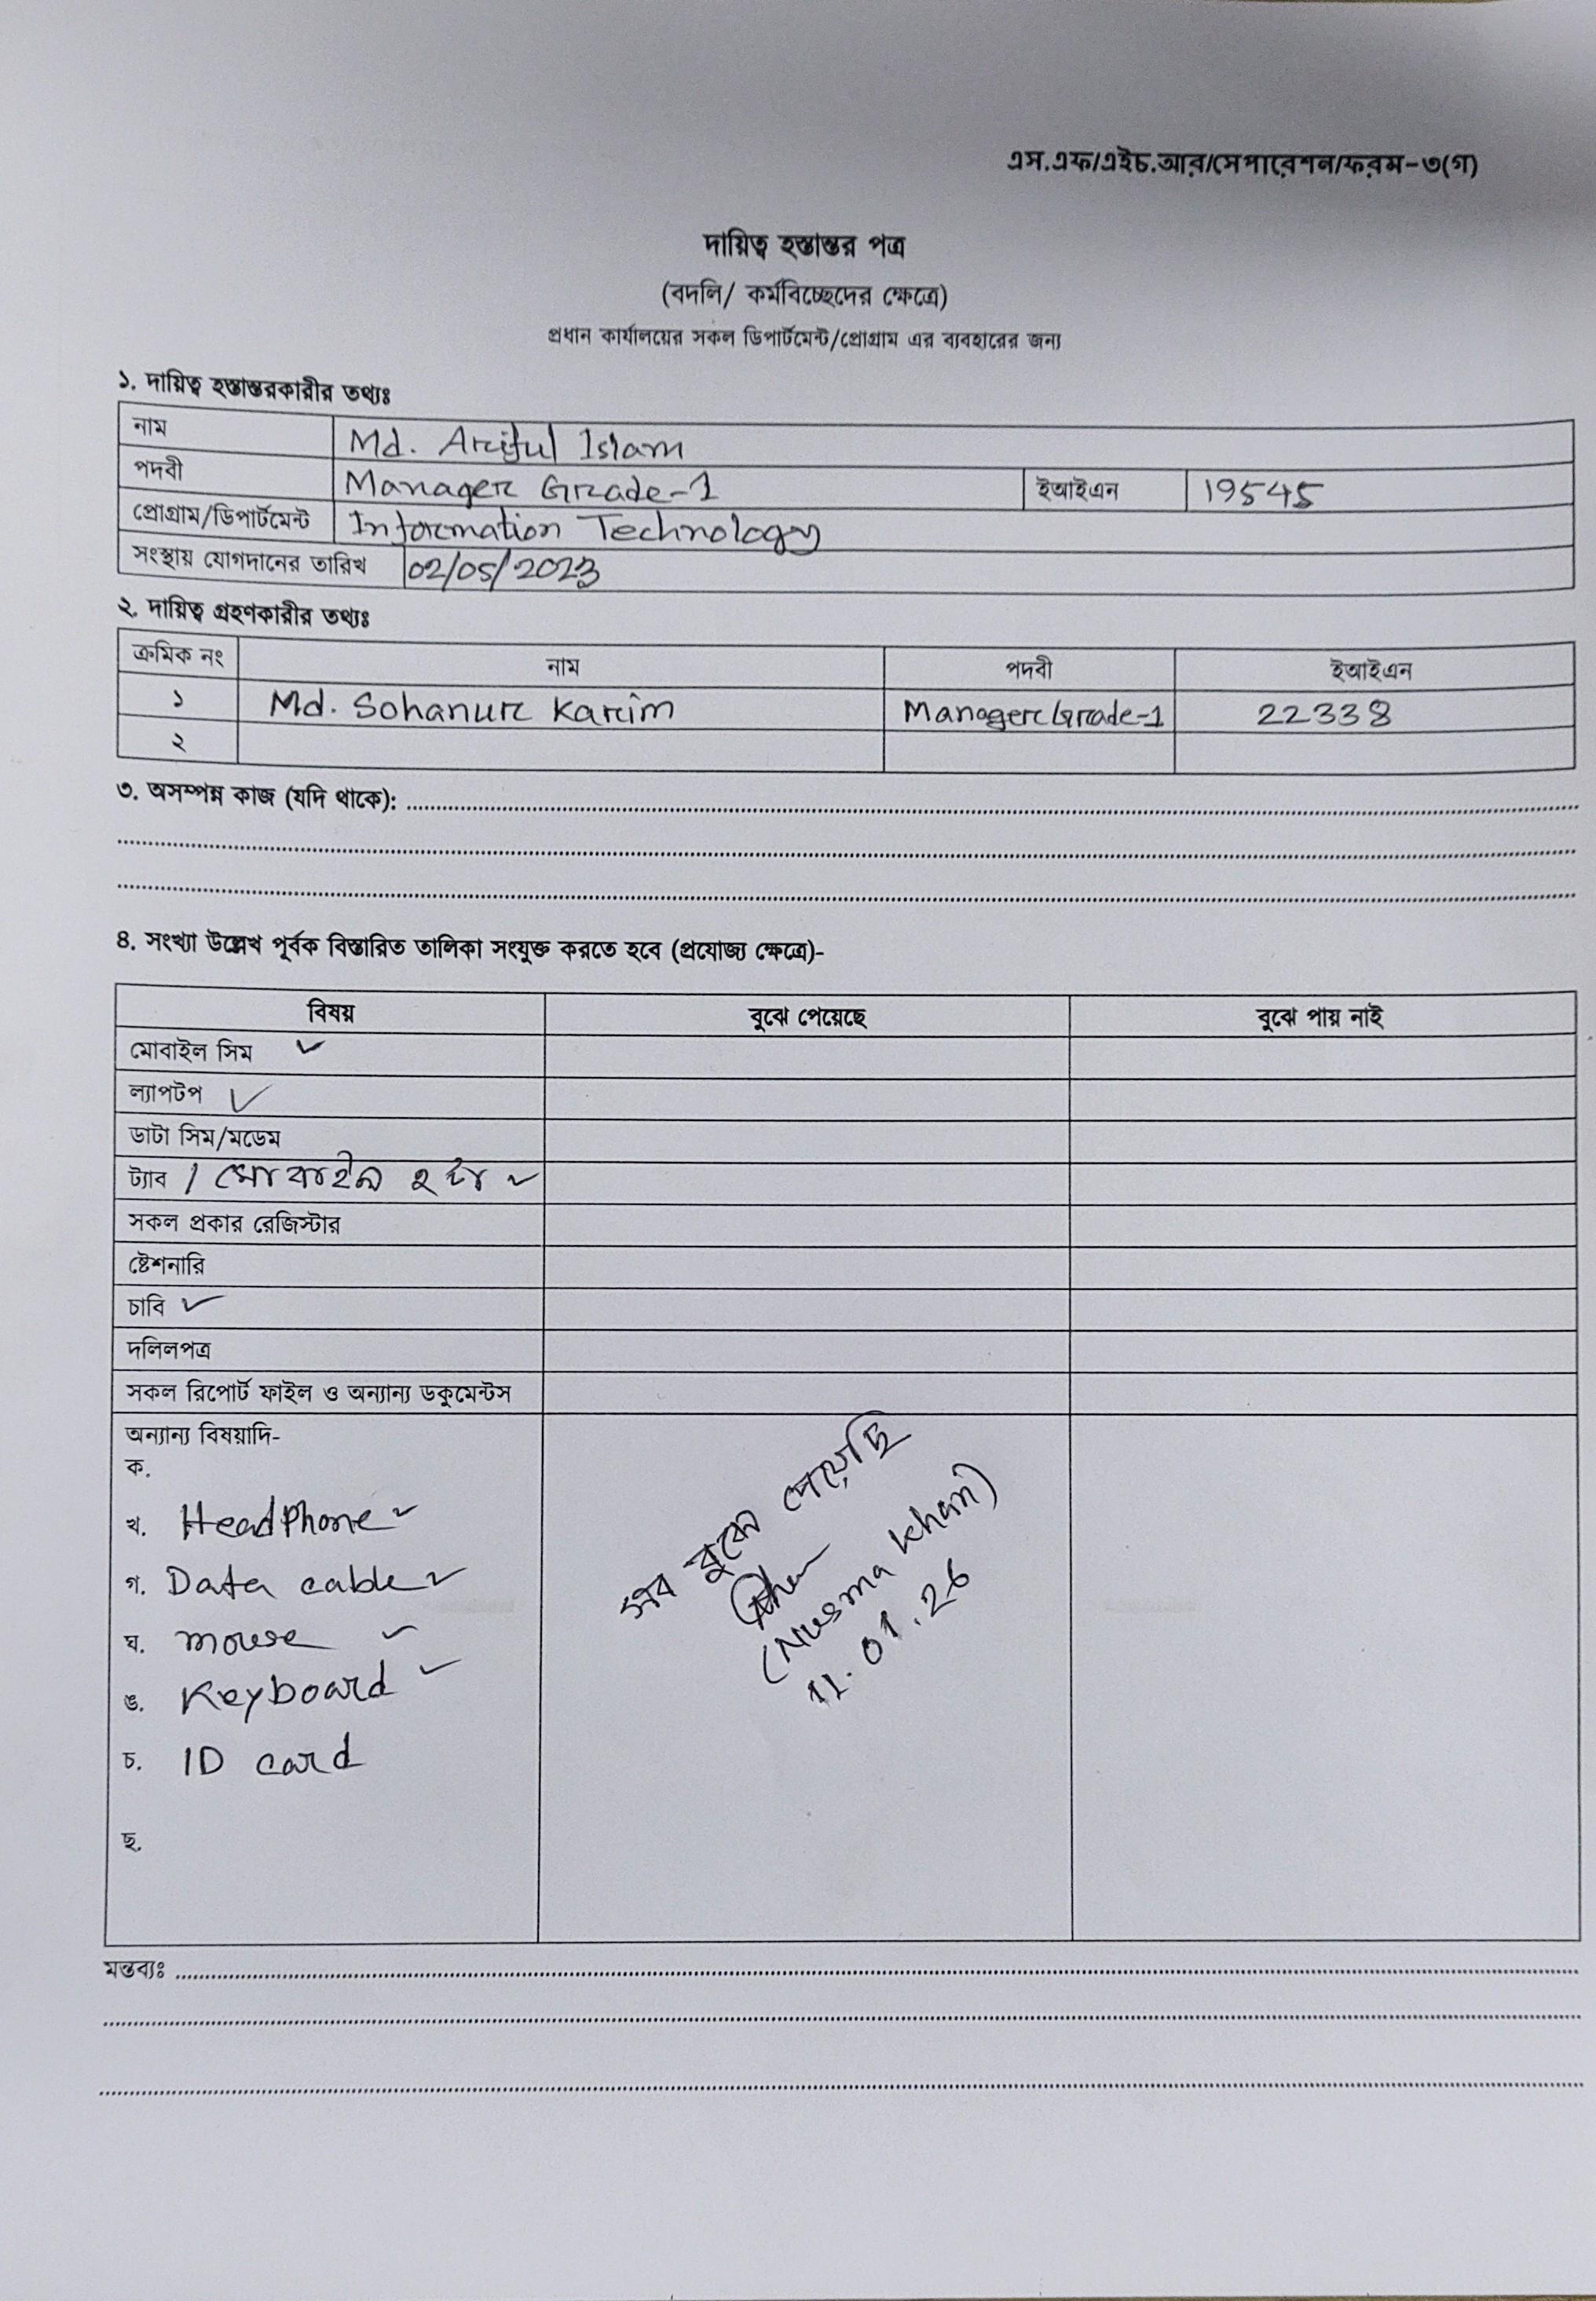 এস.এফ/এইচ.আর/সেপারেশন/ফরম-৩(গ)
দায়িত্ব হস্তান্তর পত্র
(বদলি/ কর্মবিচ্ছেদের ক্ষেত্রে)
প্রধান কার্যালয়ের সকল ডিপার্টমেন্ট/প্রোগ্রাম এর ব্যবহারের জন্য
১. দায়িত্ব হস্তান্তরকারীর তথ্যঃ
নাম Md. Ariful Islam
পদবী Manager Grade-1 ইআইএন 19545
প্রোগ্রাম/ডিপার্টমেন্ট Information Technology
সংস্থায় যোগদানের তারিখ 02/05/2023
২. দায়িত্ব গ্রহণকারীর তথ্যঃ
ক্রমিক নং নাম পদবী ইআইএন
১ Md. Sohanur Karim Manager Grade-1 22338
২
৩. অসম্পন্ন কাজ (যদি থাকে):
৪. সংখ্যা উল্লেখ পূর্বক বিস্তারিত তালিকা সংযুক্ত করতে হবে (প্রযোজ্য ক্ষেত্রে)-
বিষয় বুঝে পেয়েছে বুঝে পায় নাই
মোবাইল সিম ✓
ল্যাপটপ ✓
ডাটা সিম/মডেম
ট্যাব / মোবাইল ২ টা ✓
সকল প্রকার রেজিস্টার
ষ্টেশনারি
চাবি ✓
দলিলপত্র
সকল রিপোর্ট ফাইল ও অন্যান্য ডকুমেন্টস
অন্যান্য বিষয়াদি-
ক.
খ. Headphone ✓
গ. Data cable ✓
ঘ. mouse ✓
ঙ. Keyboard ✓
চ. ID card
ছ.
সব বুঝে পেয়েছি
(Nusma Khan)
11.01.26
মন্তব্যঃ